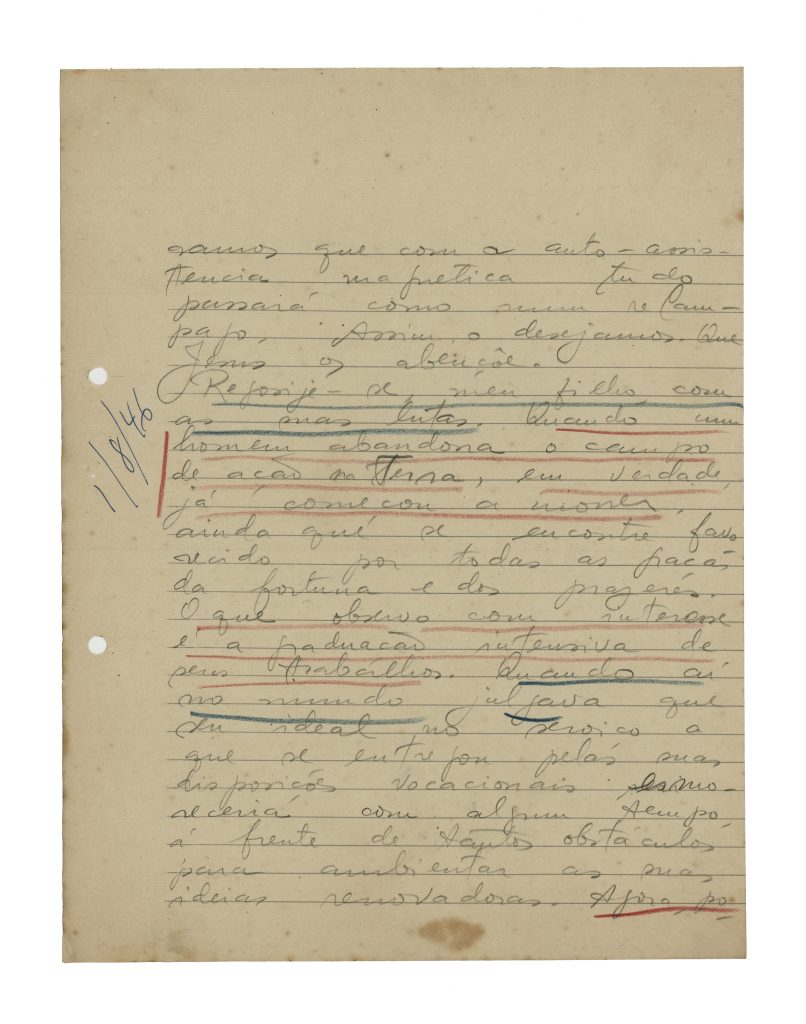 ramos que com a auto-assis-
tencia magnetica tudo
passará como num relam-
pago. Assim o desejamos. Que
Jesus os abençôe.
Regosije-se, meu filho, com
as suas lutas. Quando um
homem abandona o campo
de ação na Terra, em verdade,
já começou a morrer,
ainda que se encontre favo
recido por todas as graças
da fortuna e dos prazeres.
O que observo com interesse
é a graduação intensiva de
seus trabalhos. Quando aí
no mundo julgava que
seu ideal no serviço a
que se entregou pelas suas
disposições vocacionais esmo-
receria com algum tempo,
á frente de tantos obstáculos
para ambientar as suas
ideias renovadoras. Agora, po-
1/8/46